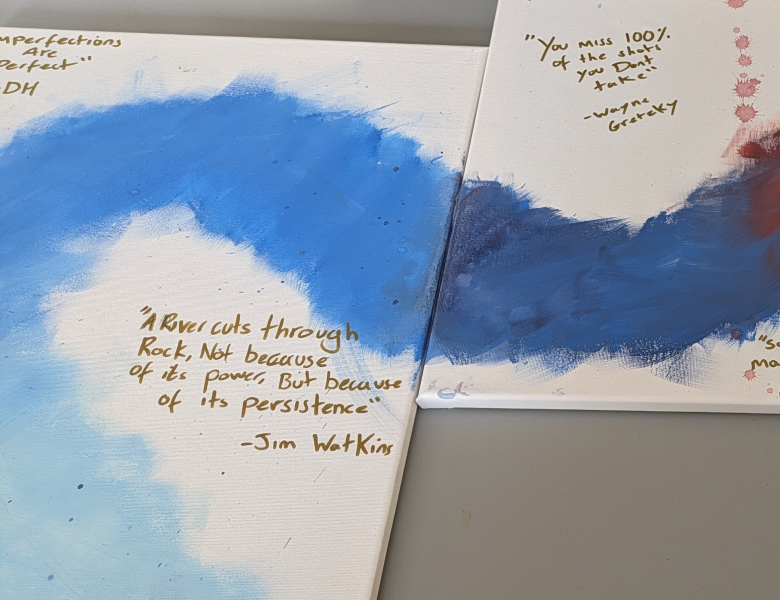 mperfections
Are
Perfect"
-DH
"You miss 100%
of the shots
you Dont
take"
-Wayne
Gretzky
"A River cuts through
Rock, Not because
of its power, But because
of its persistence"
-Jim Watkins